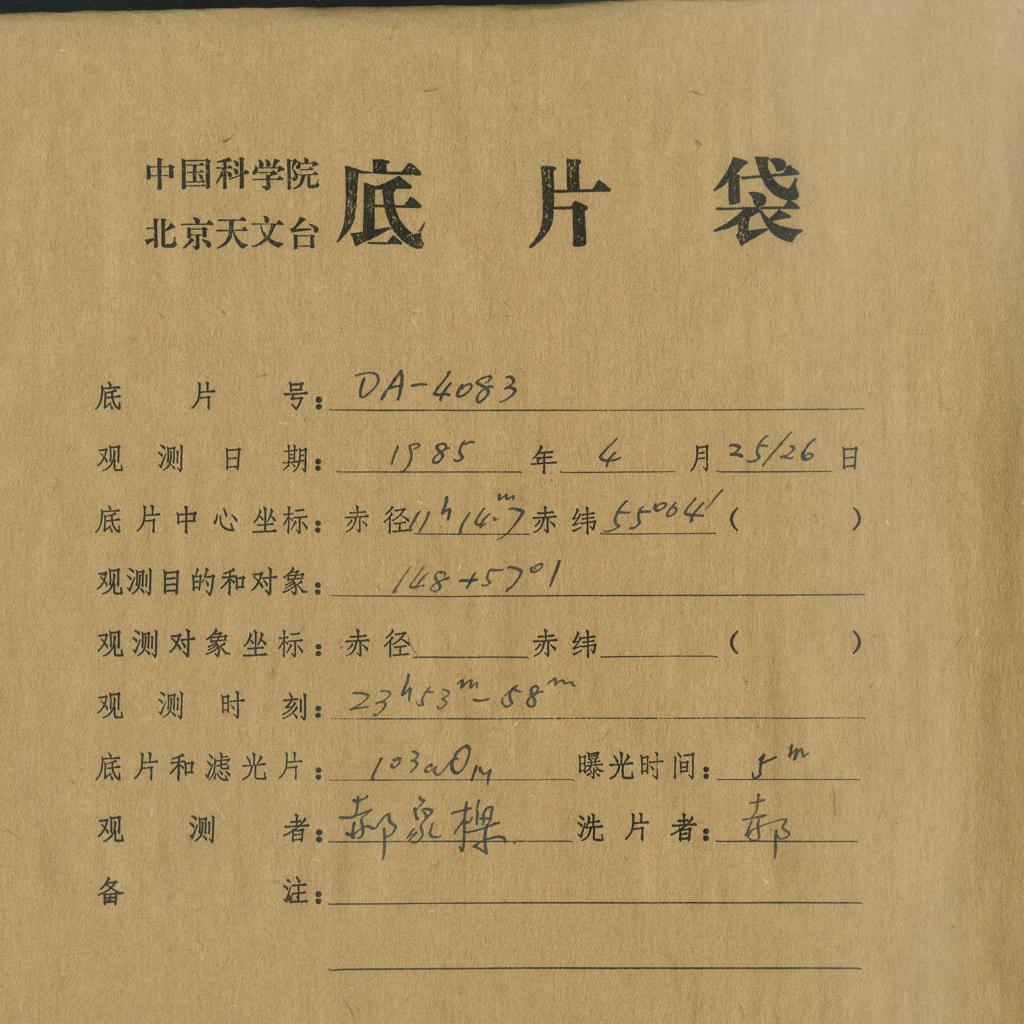 中国科学院
北京天文台
底片袋
底片号：DA-4083
观测日期：1985年4月25/26日
底片中心坐标：赤径11h14.m7赤纬55°04′（ ）
观测目的和对象：148+57°1
观测对象坐标：赤径 赤纬 （ ）
观测时刻：23h53m-58m
底片和滤光片：103aO 曝光时间：5m
观测者：郝象樑 洗片者：郝
备注：